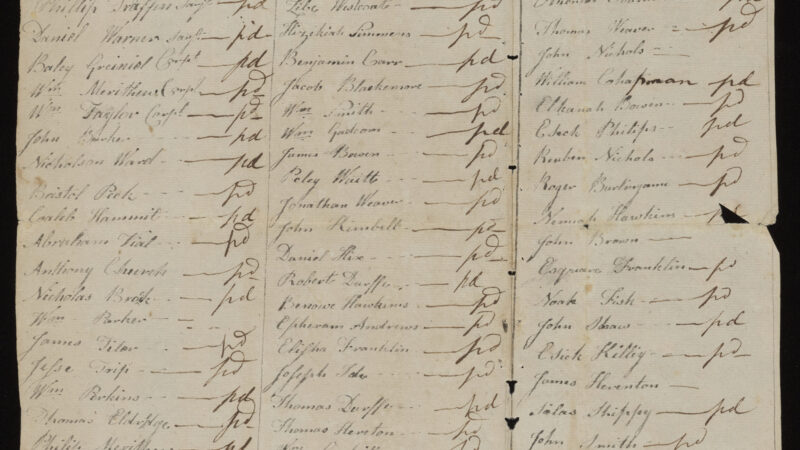 Phillip Sarjt pd
Daniel Warner Sarjt pd
Baley Corpt pd
Wm Merithew Corpt pd
Wm Taylor Corpt pd
John Barker pd
Nicholson Ward pd
Bristol Peck pd
Caleb Hammit pd
Abraham Vial pd
Anthony Church pd
Nicholas pd
Wm Parker
James pd
Jesse Tripp pd
Wm Perkins pd
Thomas Eldridge pd
Philip pd
pd
Hezekiah Simmons pd
Benjamin Carr pd
Jacob Blackmore pd
Wm Smith pd
Wm pd
James Bowen pd
Peley Waitt pd
Jonathan Weaver pd
John Kimbell pd
Daniel Hix pd
Robert Durffe pd
Hawkins pd
Epheram Andrews pd
Elisha Franklin pd
Joseph pd
Thomas Durffe pd
Thomas pd
Wm
Thomas Weaver pd
John Nichols
William pd
Elkanah Bowen pd
Eseck Philips pd
Reuben Nichols pd
Roger Burlingame pd
Hawkins pd
John Brown
Esquare Franklin pd
Noah Fish pd
John Straw pd
Esick pd
James Herenton
Silas Shippey pd
John Smith pd